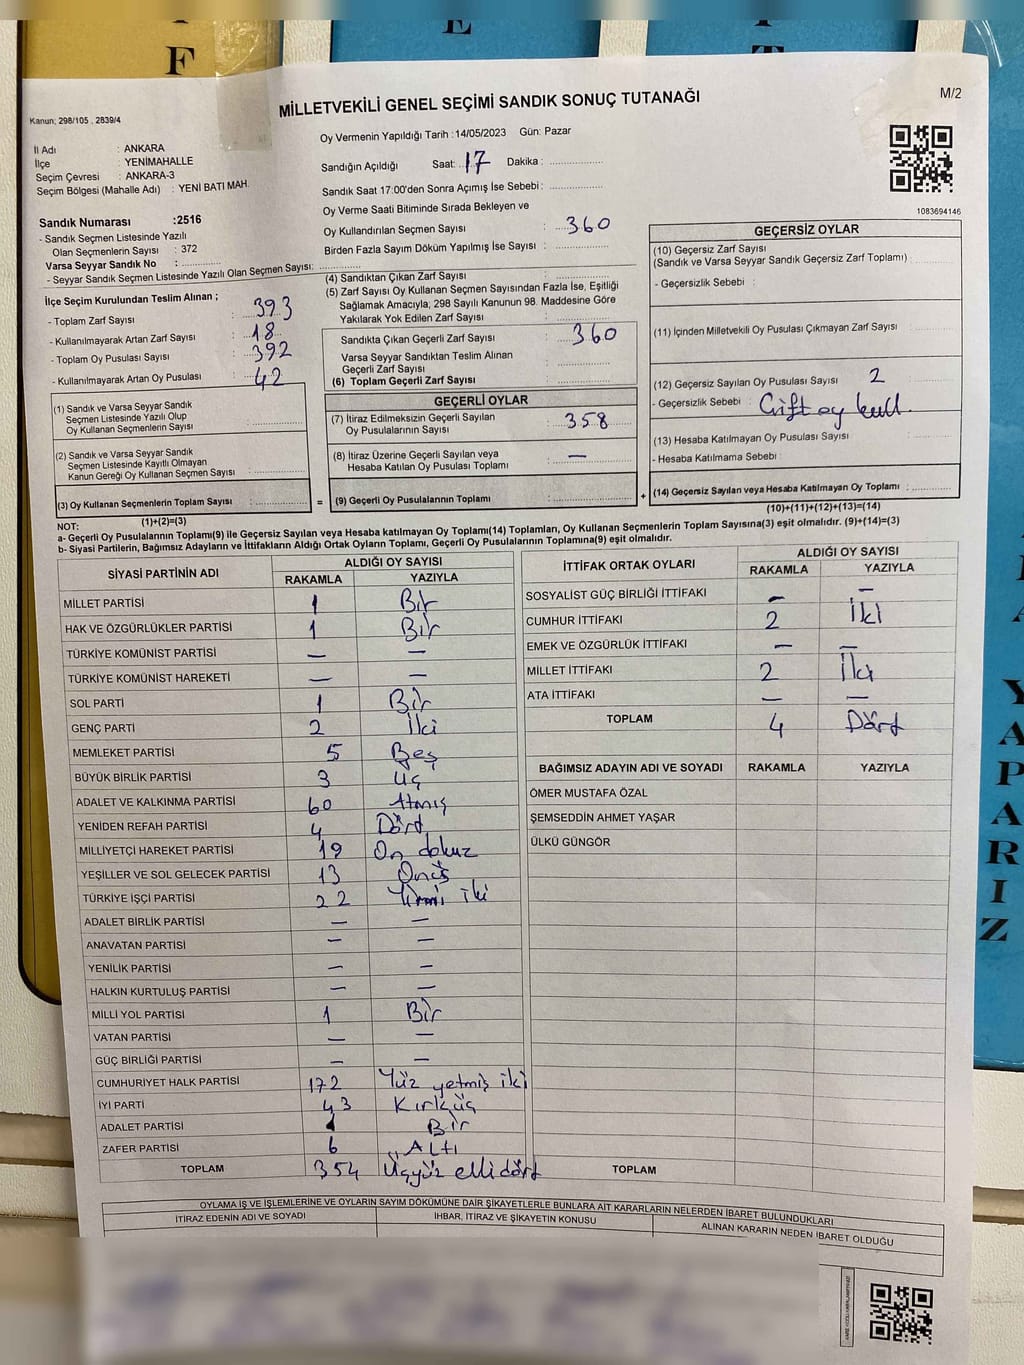 F
E
İ
T
MİLLETVEKİLİ GENEL SEÇİMİ SANDIK SONUÇ TUTANAĞI
M/2
Kanun; 298/105 , 2839/4
İl Adı : ANKARA
İlçe : YENİMAHALLE
Seçim Çevresi : ANKARA-3
Seçim Bölgesi (Mahalle Adı) : YENİ BATI MAH.
Sandık Numarası :2516
- Sandık Seçmen Listesinde Yazılı
Olan Seçmenlerin Sayısı : 372
Varsa Seyyar Sandık No :
- Seyyar Sandık Seçmen Listesinde Yazılı Olan Seçmen Sayısı:
İlçe Seçim Kurulundan Teslim Alınan ;
- Toplam Zarf Sayısı : 393
- Kullanılmayarak Artan Zarf Sayısı : 18
- Toplam Oy Pusulası Sayısı : 392
- Kullanılmayarak Artan Oy Pusulası : 42
(1) Sandık ve Varsa Seyyar Sandık
Seçmen Listesinde Yazılı Olup
Oy Kullanan Seçmenlerin Sayısı :
(2) Sandık ve Varsa Seyyar Sandık
Seçmen Listesinde Kayıtlı Olmayan
Kanun Gereği Oy Kullanan Seçmen Sayısı :
(3) Oy Kullanan Seçmenlerin Toplam Sayısı :
(1)+(2)=(3)
Oy Vermenin Yapıldığı Tarih : 14/05/2023 Gün: Pazar
Sandığın Açıldığı Saat: 17 Dakika :
Sandık Saat 17:00'den Sonra Açımış İse Sebebi :
Oy Verme Saati Bitiminde Sırada Bekleyen ve
Oy Kullandırılan Seçmen Sayısı : 360
Birden Fazla Sayım Döküm Yapılmış İse Sayısı :
(4) Sandıktan Çıkan Zarf Sayısı :
(5) Zarf Sayısı Oy Kullanan Seçmen Sayısından Fazla İse, Eşitliği
Sağlamak Amacıyla; 298 Sayılı Kanunun 98. Maddesine Göre
Yakılarak Yok Edilen Zarf Sayısı :
Sandıkta Çıkan Geçerli Zarf Sayısı : 360
Varsa Seyyar Sandıktan Teslim Alınan
Geçerli Zarf Sayısı :
(6) Toplam Geçerli Zarf Sayısı :
GEÇERLİ OYLAR
(7) İtiraz Edilmeksizin Geçerli Sayılan
Oy Pusulalarının Sayısı : 358
(8) İtiraz Üzerine Geçerli Sayılan veya
Hesaba Katılan Oy Pusulası Toplamı : —
= (9) Geçerli Oy Pusulalarının Toplamı :
1083694146
GEÇERSİZ OYLAR
(10) Geçersiz Zarf Sayısı
(Sandık ve Varsa Seyyar Sandık Geçersiz Zarf Toplamı) :
- Geçersizlik Sebebi :
(11) İçinden Milletvekili Oy Pusulası Çıkmayan Zarf Sayısı :
(12) Geçersiz Sayılan Oy Pusulası Sayısı : 2
- Geçersizlik Sebebi : Çift oy kull.
(13) Hesaba Katılmayan Oy Pusulası Sayısı :
- Hesaba Katılmama Sebebi :
+ (14) Geçersiz Sayılan veya Hesaba Katılmayan Oy Toplamı :
(10)+(11)+(12)+(13)=(14)
NOT:
a- Geçerli Oy Pusulalarının Toplamı(9) ile Geçersiz Sayılan veya Hesaba katılmayan Oy Toplamı(14) Toplamları, Oy Kullanan Seçmenlerin Toplam Sayısına(3) eşit olmalıdır. (9)+(14)=(3)
b- Siyasi Partilerin, Bağımsız Adayların ve İttifakların Aldığı Ortak Oyların Toplamı, Geçerli Oy Pusulalarının Toplamına(9) eşit olmalıdır.
SİYASİ PARTİNİN ADI ALDIĞI OY SAYISI
RAKAMLA YAZIYLA
MİLLET PARTİSİ 1 Bir
HAK VE ÖZGÜRLÜKLER PARTİSİ 1 Bir
TÜRKİYE KOMÜNİST PARTİSİ — —
TÜRKİYE KOMÜNİST HAREKETİ — —
SOL PARTİ 1 Bir
GENÇ PARTİ 2 İki
MEMLEKET PARTİSİ 5 Beş
BÜYÜK BİRLİK PARTİSİ 3 Üç
ADALET VE KALKINMA PARTİSİ 60 Atmış
YENİDEN REFAH PARTİSİ 4 Dört
MİLLİYETÇİ HAREKET PARTİSİ 19 On dokuz
YEŞİLLER VE SOL GELECEK PARTİSİ 13 Onüç
TÜRKİYE İŞÇİ PARTİSİ 22 Yirmi iki
ADALET BİRLİK PARTİSİ — —
ANAVATAN PARTİSİ — —
YENİLİK PARTİSİ — —
HALKIN KURTULUŞ PARTİSİ — —
MİLLİ YOL PARTİSİ 1 Bir
VATAN PARTİSİ — —
GÜÇ BİRLİĞİ PARTİSİ — —
CUMHURİYET HALK PARTİSİ 172 Yüz yetmiş iki
İYİ PARTİ 43 Kırküç
ADALET PARTİSİ 1 Bir
ZAFER PARTİSİ 6 Altı
TOPLAM 354 Üçyüz ellidört
İTTİFAK ORTAK OYLARI ALDIĞI OY SAYISI
RAKAMLA YAZIYLA
SOSYALİST GÜÇ BİRLİĞİ İTTİFAKI — —
CUMHUR İTTİFAKI 2 İki
EMEK VE ÖZGÜRLÜK İTTİFAKI — —
MİLLET İTTİFAKI 2 İki
ATA İTTİFAKI — —
TOPLAM 4 Dört
BAĞIMSIZ ADAYIN ADI VE SOYADI RAKAMLA YAZIYLA
ÖMER MUSTAFA ÖZAL
ŞEMSEDDİN AHMET YAŞAR
ÜLKÜ GÜNGÖR
TOPLAM
OYLAMA İŞ VE İŞLEMLERİNE VE OYLARIN SAYIM DÖKÜMÜNE DAİR ŞİKAYETLERLE BUNLARA AİT KARARLARIN NELERDEN İBARET BULUNDUKLARI
İTİRAZ EDENİN ADI VE SOYADI İHBAR, İTİRAZ VE ŞİKAYETİN KONUSU ALINAN KARARIN NEDEN İBARET OLDUĞU
Y
A
P
A
R
I
Z